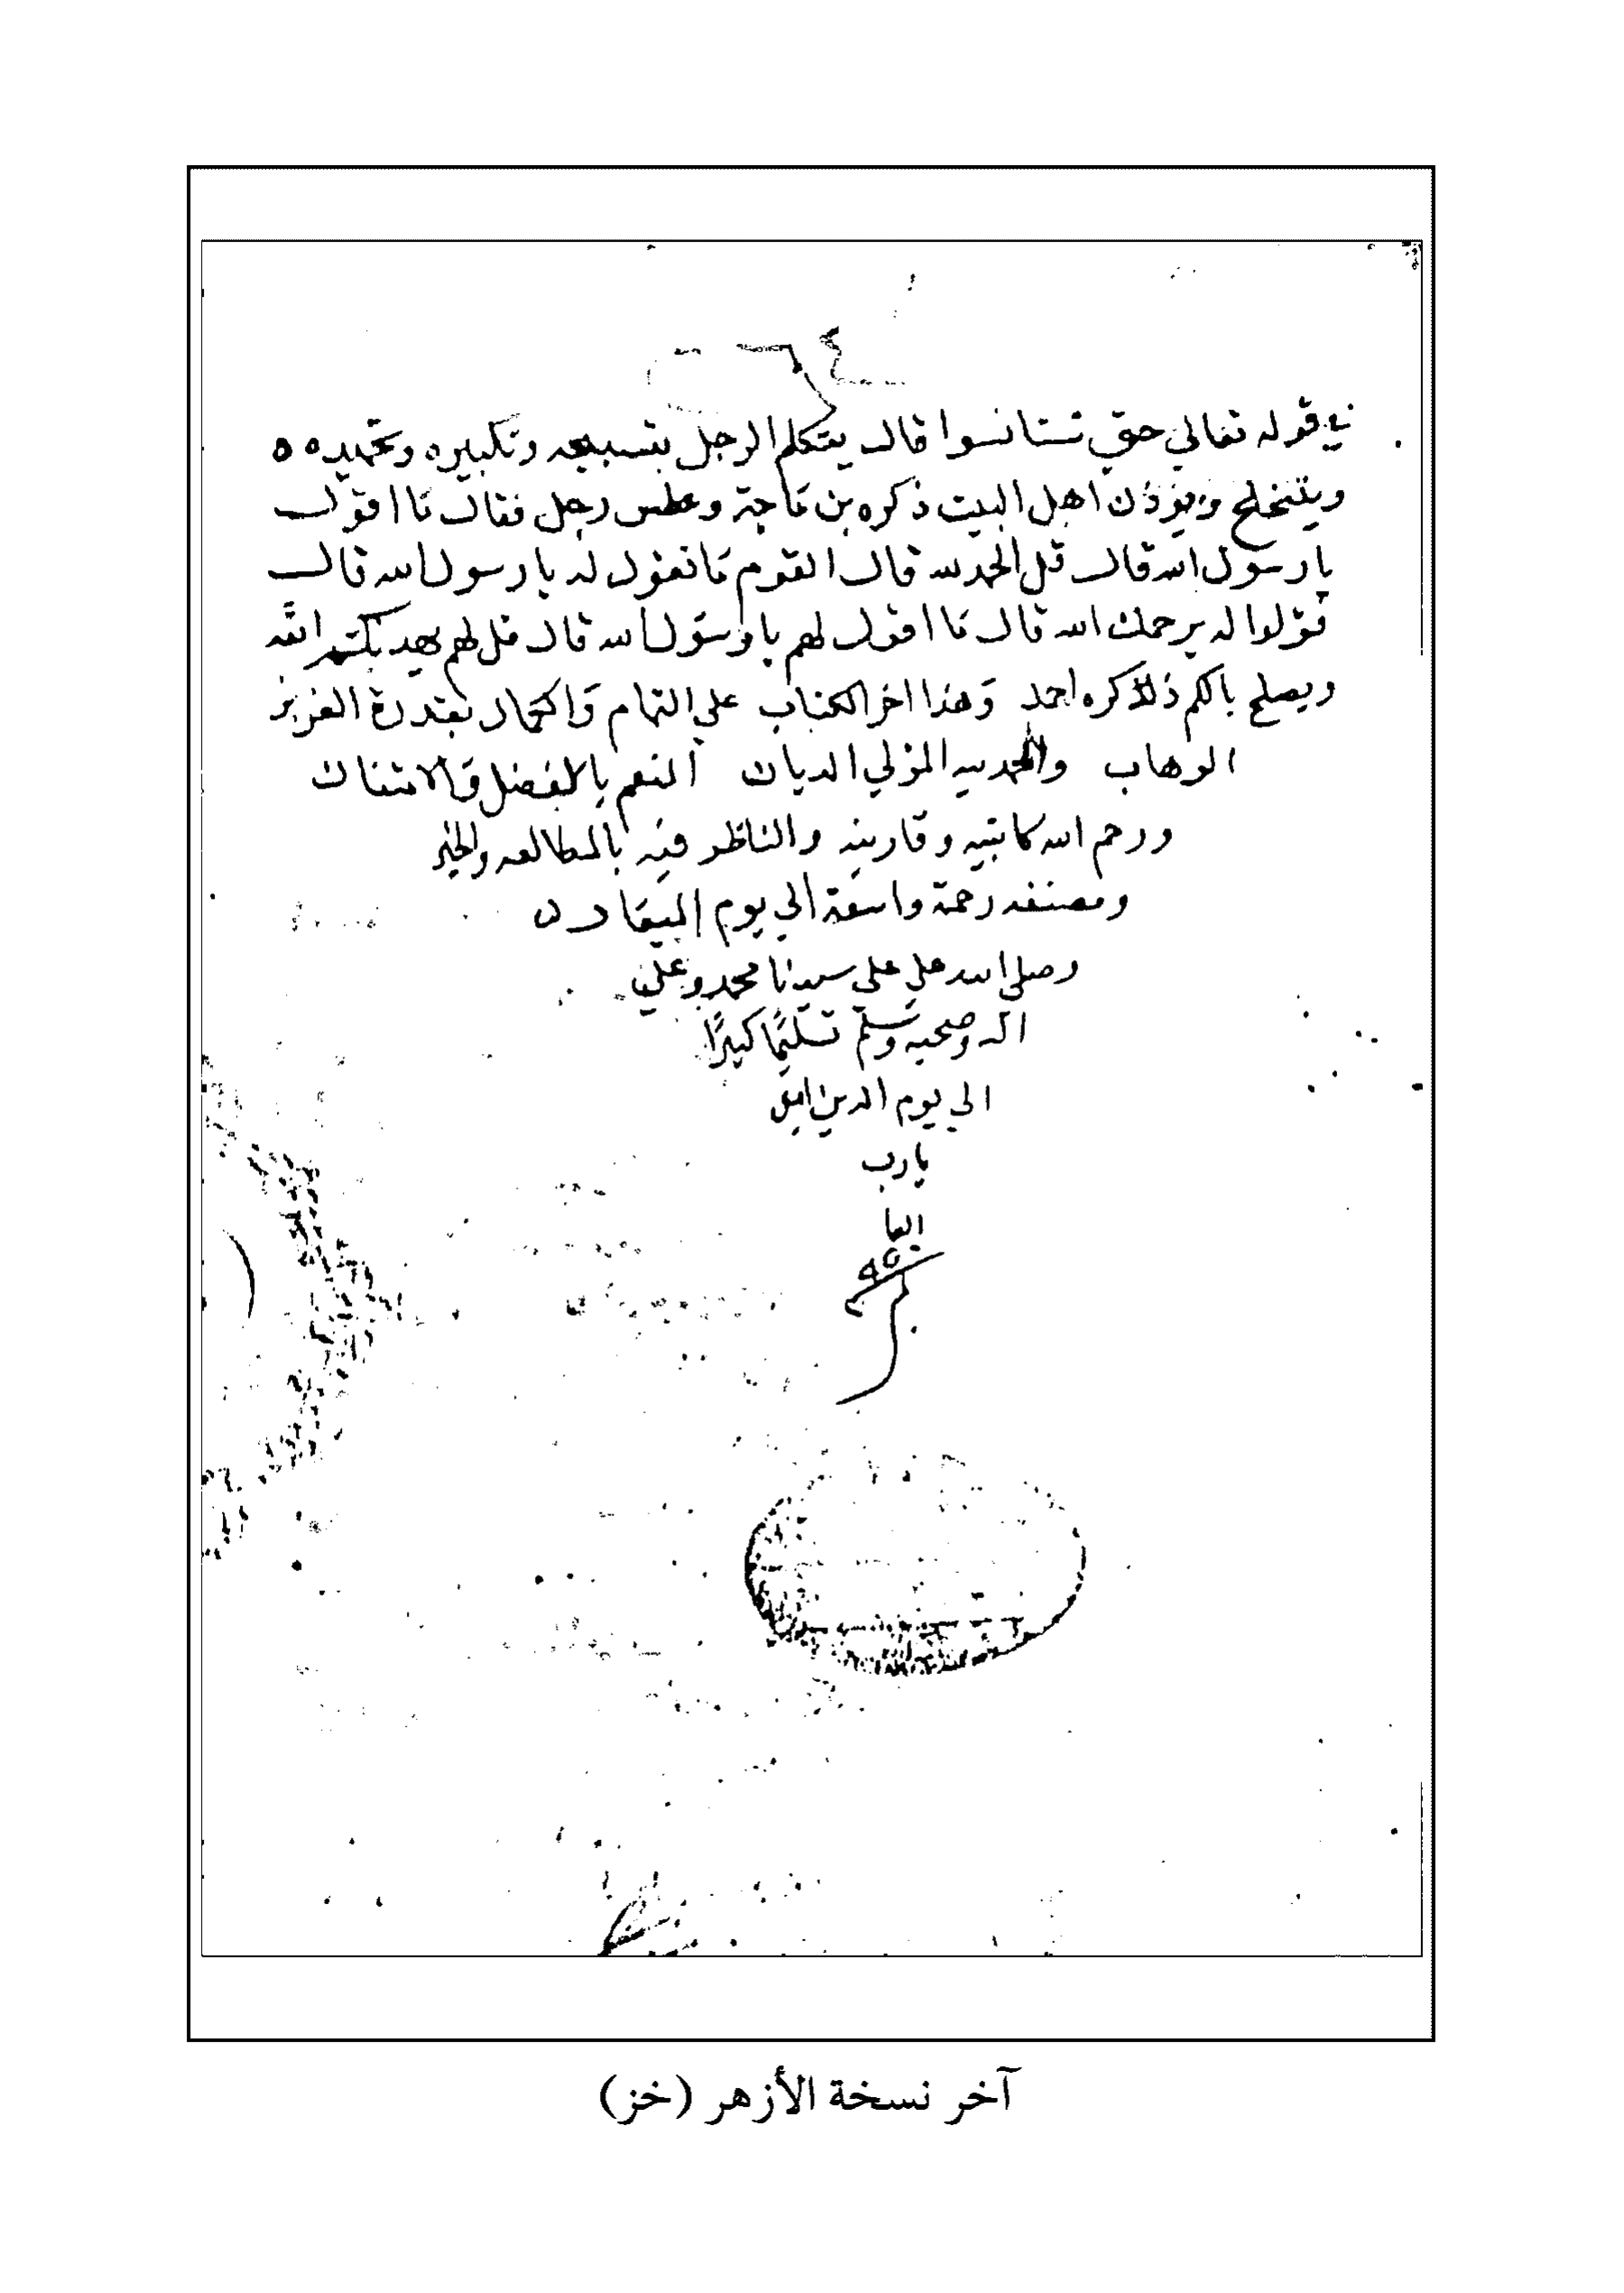 في قوله تعالي حتي تستانسوا قال يتكلم الرجل بتسبيحه وتكبيره وتحميده ه
ويتنحنح ويوذن اهل البيت ذكره بن ماجة وعطس رجل فقال ما اقول
يا رسول الله قال قل الحمد لله قال القوم ما نقول له يا رسول الله قال
قولوا له يرحمك الله قال ما اقول لهم يا رسول الله قال قل لهم يهديكم الله
ويصلح بالكم ذكره احمد وهذا اخر الكتاب علي التمام والكمال بقدرة العزيز
الوهاب والحمد لله المولي الديان المنعم بالفضل والامتنان
ورحم الله كاتبه وقارئه والناظر فيه بالمطالعه والخير
ومصنفه رحمة واسعة الي يوم الميعاد
وصلي الله علي علي سيدنا محمد وعلي
اله وصحبه وسلم تسليما كثيرًا
الي يوم الدين امين
يارب
العا
م
آخر نسخة الأزهر (خز)